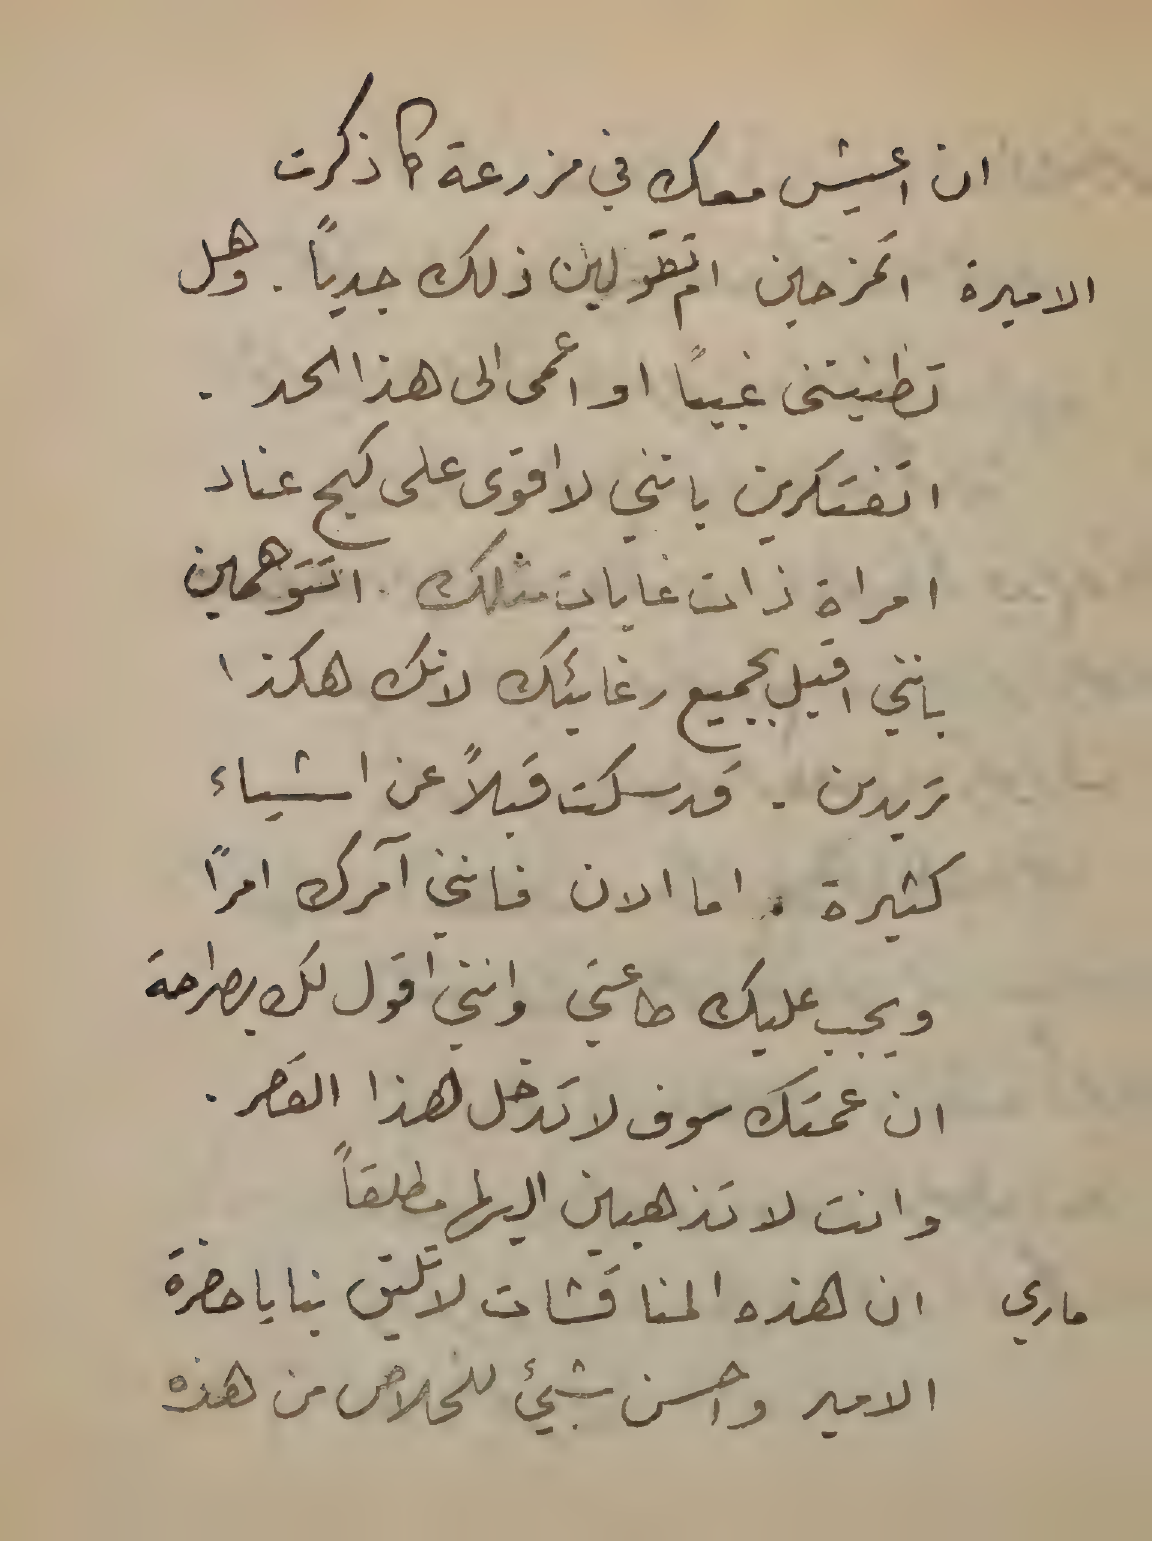 ان اعيش معك في مزرعة كما ذكرت
الاميرة اتمزحين ام تقولين ذلك جدياً . وهل
تظنينني غبياً او اعمى الى هذا الحد .
اتفتكرين بانني لا اقوى على كبح عناد
امراة ذات غايات مثلك . اتتوهمين
بانني اقبل بجميع رغائبك لانك هكذا
تريدين . قد سكت قبلاً عن اشياء
كثيرة . اما الان فانني آمرك امراً
ويجب عليك طاعتي وانني اقول لك بصراحة
ان عمتك سوف لا تدخل هذا القصر .
وانت لا تذهبين اليها مطلقاً
ماري ان هذه المناقشات لا تليق بنا يا حضرة
الامير واحسن شيئ للخلاص من هذه